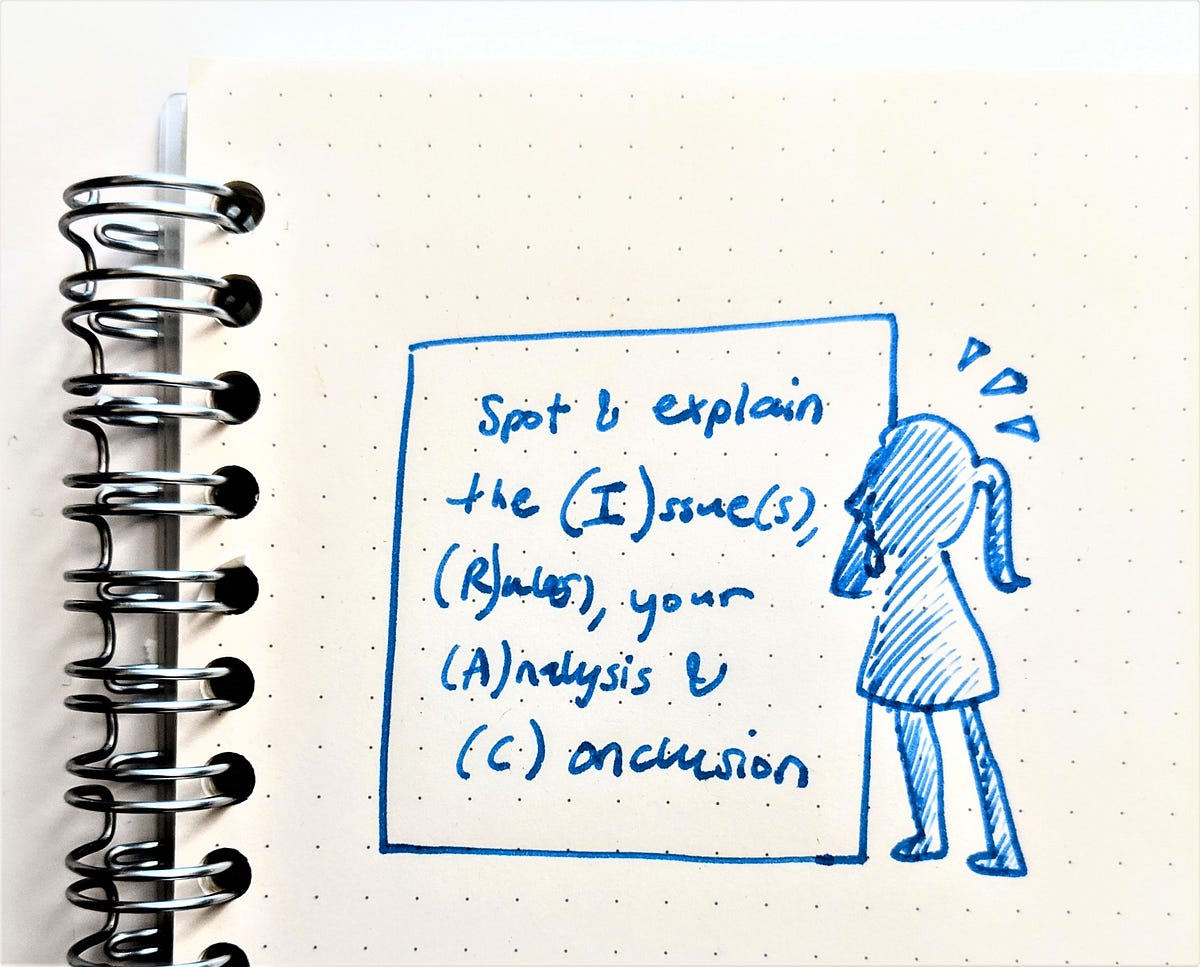 Spot & explain
the (I)ssue(s),
(R)ule(s), your
(A)nalysis &
(C) onclusion